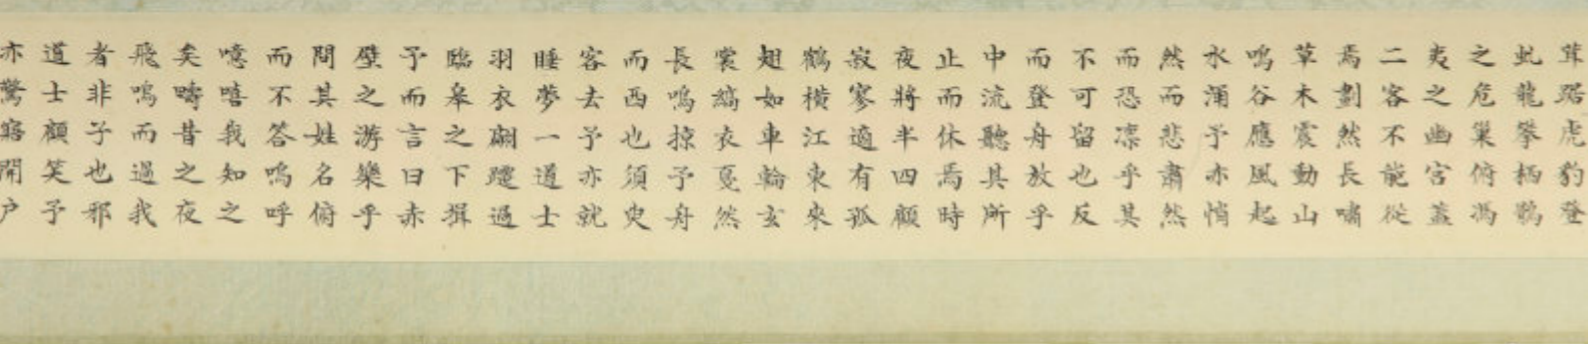 茸踞虎豹登
虬龍攀栖鶻
之危巢俯馮
夷之幽宮蓋
二客不能從
焉劃然長嘯
草木震動山
鳴谷應風起
水涌予亦悄
然而悲肅然
而恐凛乎其
不可留也反
而登舟放乎
中流聽其所
止而休焉時
夜將半四顧
寂寥適有孤
鶴橫江東來
翅如車輪玄
裳縞衣戛然
長鳴掠予舟
而西也須臾
客去予亦就
睡夢一道士
羽衣翩躚過
臨皋之下揖
予而言曰赤
壁之游樂乎
問其姓名俯
而不答嗚呼
噫嘻我知之
矣疇昔之夜
飛鳴而過我
者非子也邪
道士顧笑予
亦驚寤開户